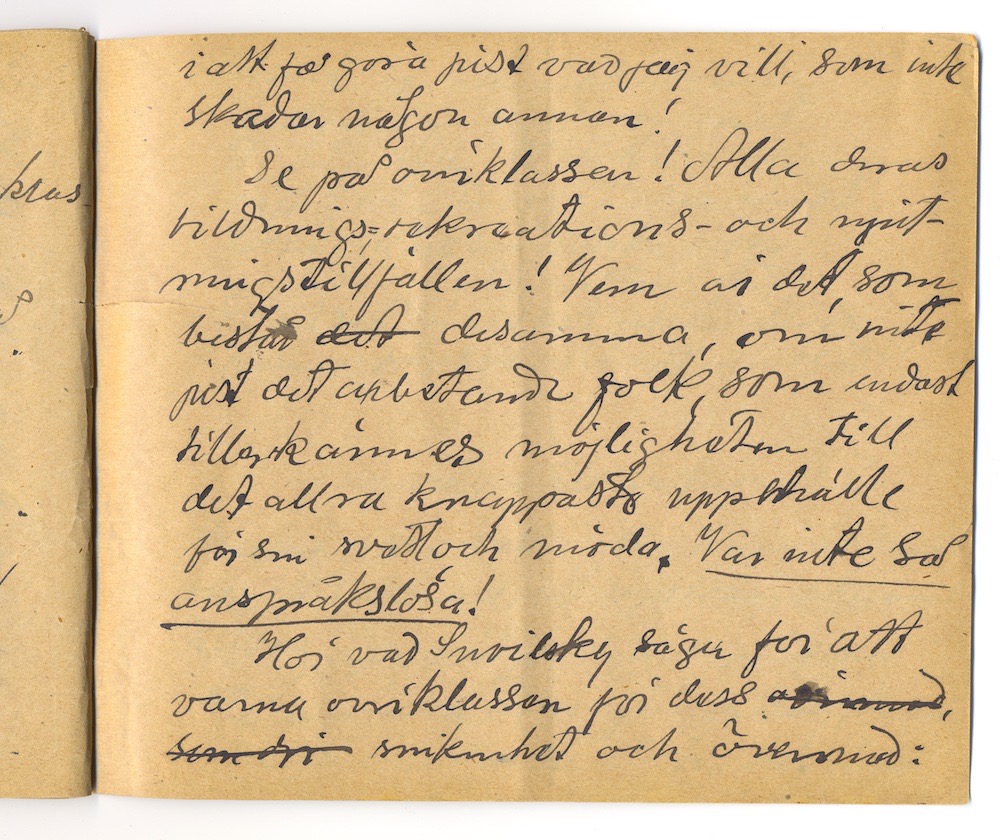 i att få göra just vad jag vill, som inte
skadar någon annan!
Se på överklassen! Alla deras
bildnings-, rekreations- och njut-
ningstillfällen! Vem är det, som
består det desamma, om inte
just det arbetande folk, som endast
tillerkännes möjligheten till
det allra knappaste uppehälle
för sin svett och möda. Var inte så
anspråkslösa!
Hör vad Snoilsky säger för att
varna överklassen för dess
snikenhet och övermod:
kras